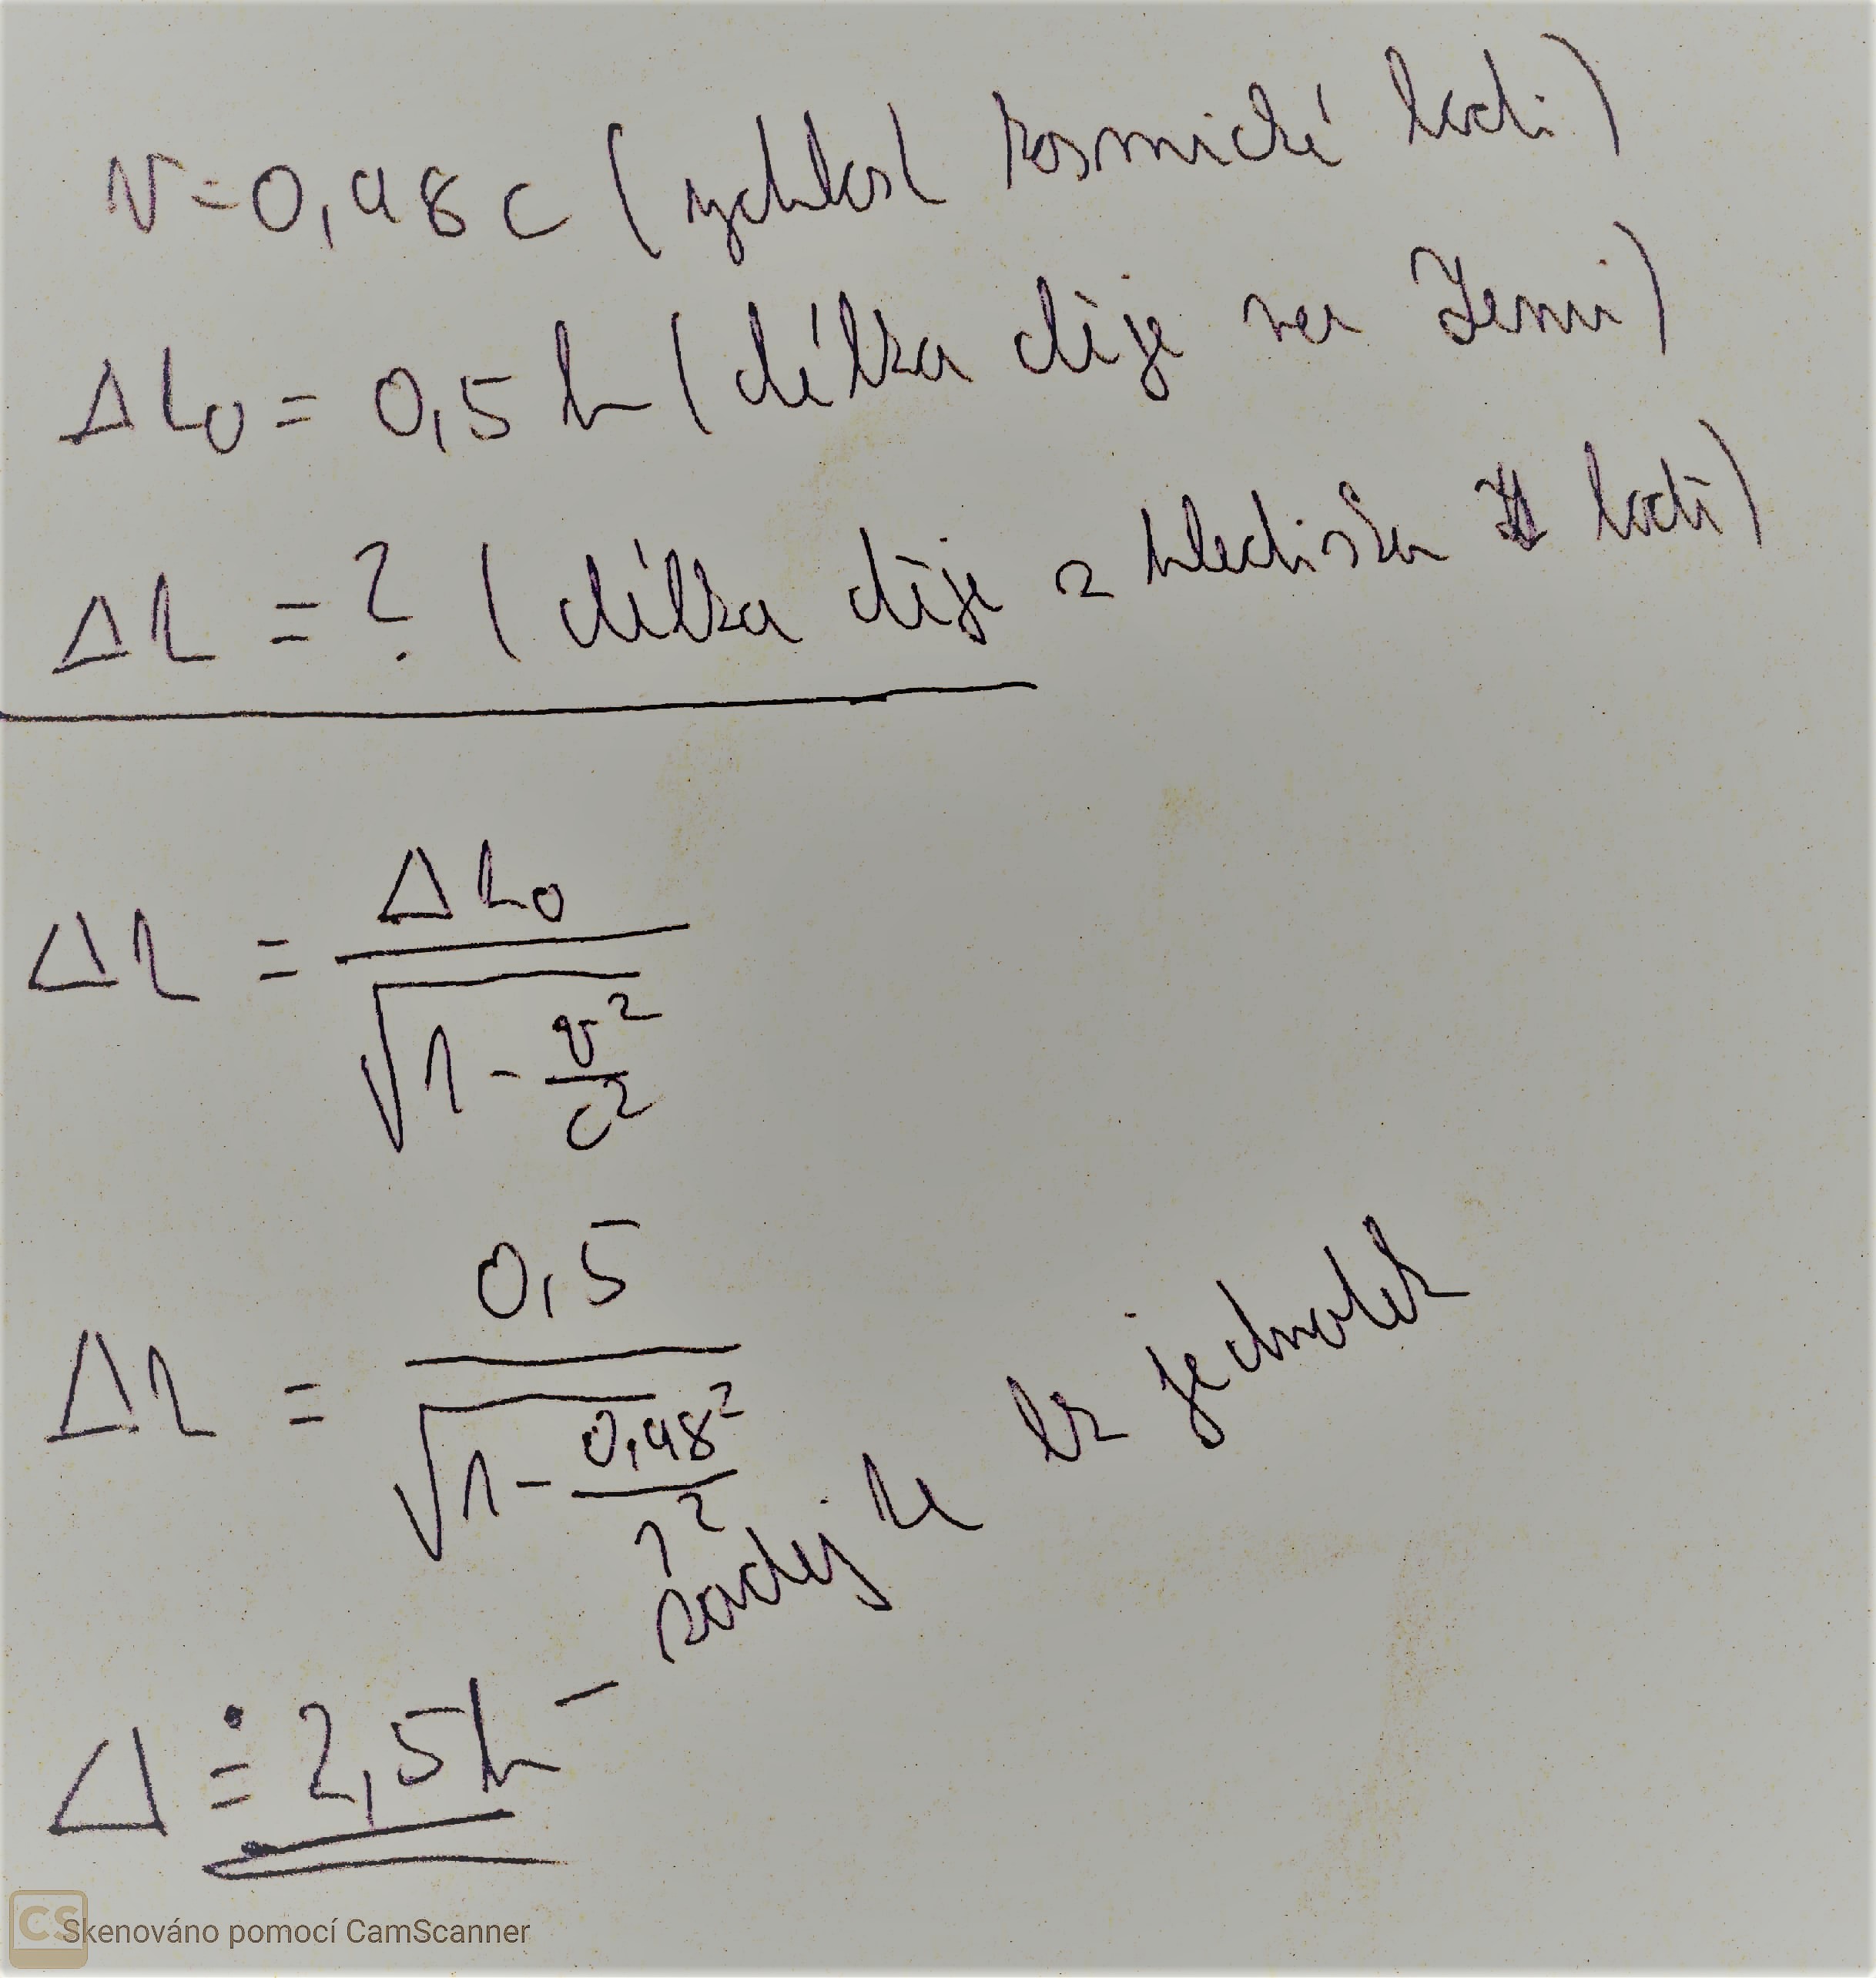 v = 0,98 c (rychlost kosmické lodi)
Δt₀ = 0,5 h (délka děje na Zemi)
Δt = ? (délka děje z hlediska lodi)
Δt = Δt₀ / √(1 - v²/c²)
Δt = 0,5 / √(1 - 0,98²/1²)
Δ ≐ 2,5 h - raději te bz jednotek
CS Skenováno pomocí CamScanner